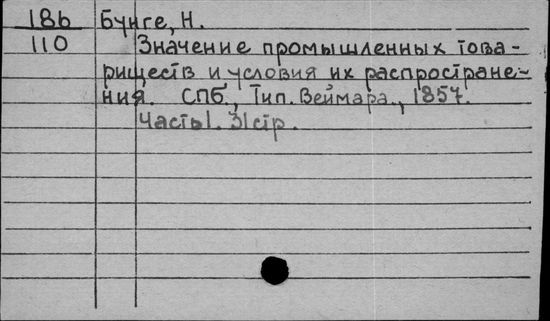 186 Бунге, Н.
110 Значение промышленных това-
риществ и условия их распростране-
ния. СПб., Тип. Веймара., 1857.
Часть I. 31 стр.